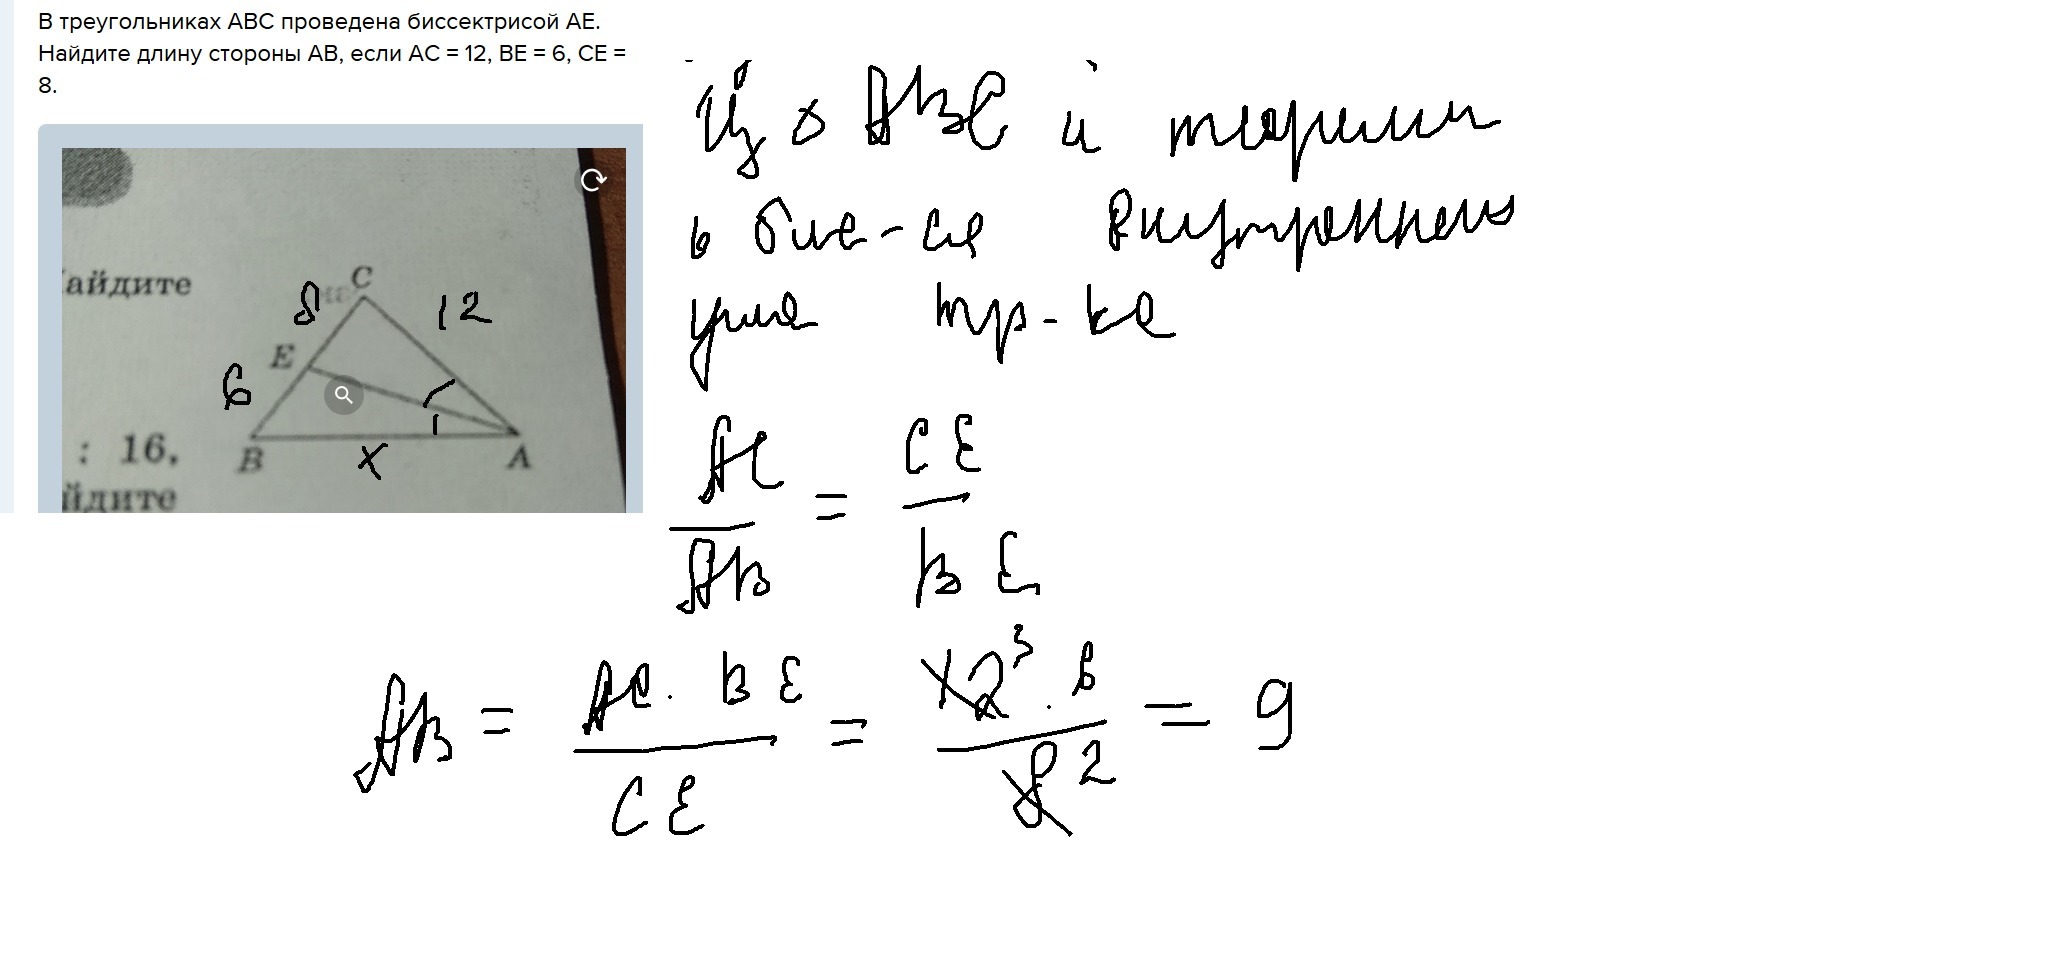 В треугольниках ABC проведена биссектрисой AE.
Найдите длину стороны AB, если AC = 12, BE = 6, CE =
8.
айдите
8 C 12
E
6
: 16,
B x A
йдите
Из △ ABC и теоремы
о бис-се внутреннего
угла тр-ка
AC
AB
=
CE
BE
AB = AC · BE / CE = 12 3 · 6 / 8 2 = 9